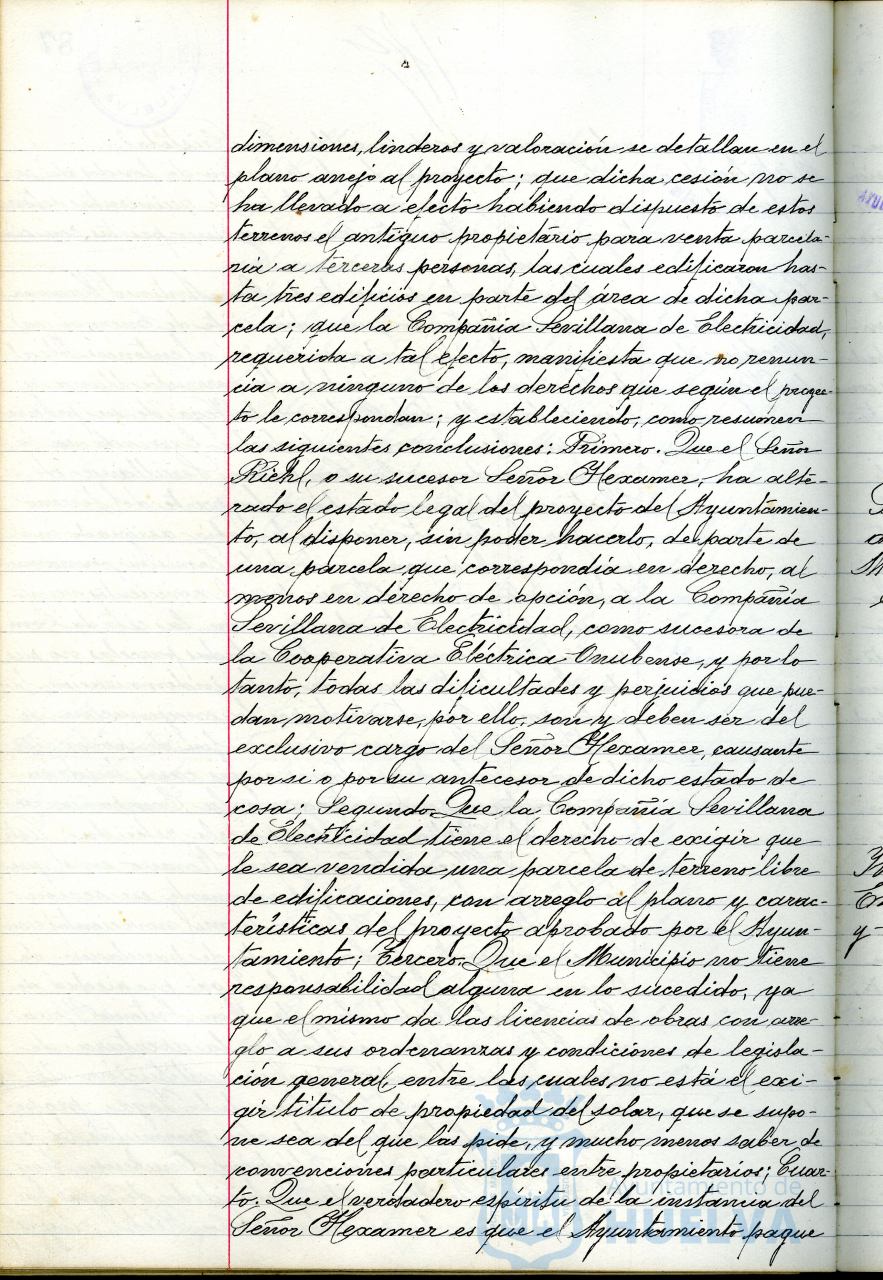 dimensiones, linderos y valoración se detallan en el
plano anejo al proyecto; que dicha cesión no se
ha llevado a efecto habiendo dispuesto de estos
terrenos el antiguo propietário para venta parcela-
ria a terceras personas, las cuales edificaron has-
ta tres edificios en parte del área de dicha par-
cela; que la Compañia Sevillana de Electricidad,
requerida a tal efecto, manifiesta que no renun-
cia a ninguno de los derechos que según el proyec-
to le correspondan; y estableciendo, como resumen
las siguientes conclusiones: Primero. Que el Señor
Riehl, o su sucesor Señor Hexamer, ha alte-
rado el estado legal del proyecto del Ayuntamien-
to, al disponer, sin poder hacerlo, de parte de
una parcela que correspondía en derecho, al
menos en derecho de opción, a la Compañia
Sevillana de Electricidad, como sucesora de
la Cooperativa Eléctrica Onubense, y por lo
tanto, todas las dificultades y perjuicios que pue-
dan motivarse, por ello, son y deben ser del
exclusivo cargo del Señor Hexamer, causante
por si o por su antecesor de dicho estado de
cosa; Segundo. Que la Compañia Sevillana
de Electricidad tiene el derecho de exigir que
le sea vendida una parcela de terreno libre
de edificaciones, con arreglo al plano y carac-
terísticas del proyecto aprobado por el Ayun-
tamiento; Tercero. Que el Municipio no tiene
responsabilidad alguna en lo sucedido, ya
que el mismo da las licencias de obras con arre-
glo a sus ordenanzas y condiciones de legisla-
ción general, entre las cuales no está el exi-
gir titulo de propiedad del solar, que se supo-
ne sea del que las pide, y mucho menos saber de
convenciones particulares entre propietarios; Cuar-
to. Que el verdadero espiritu de la instancia del
Señor Hexamer es que el Ayuntamiento pague
Ayuntamiento de
HUELVA